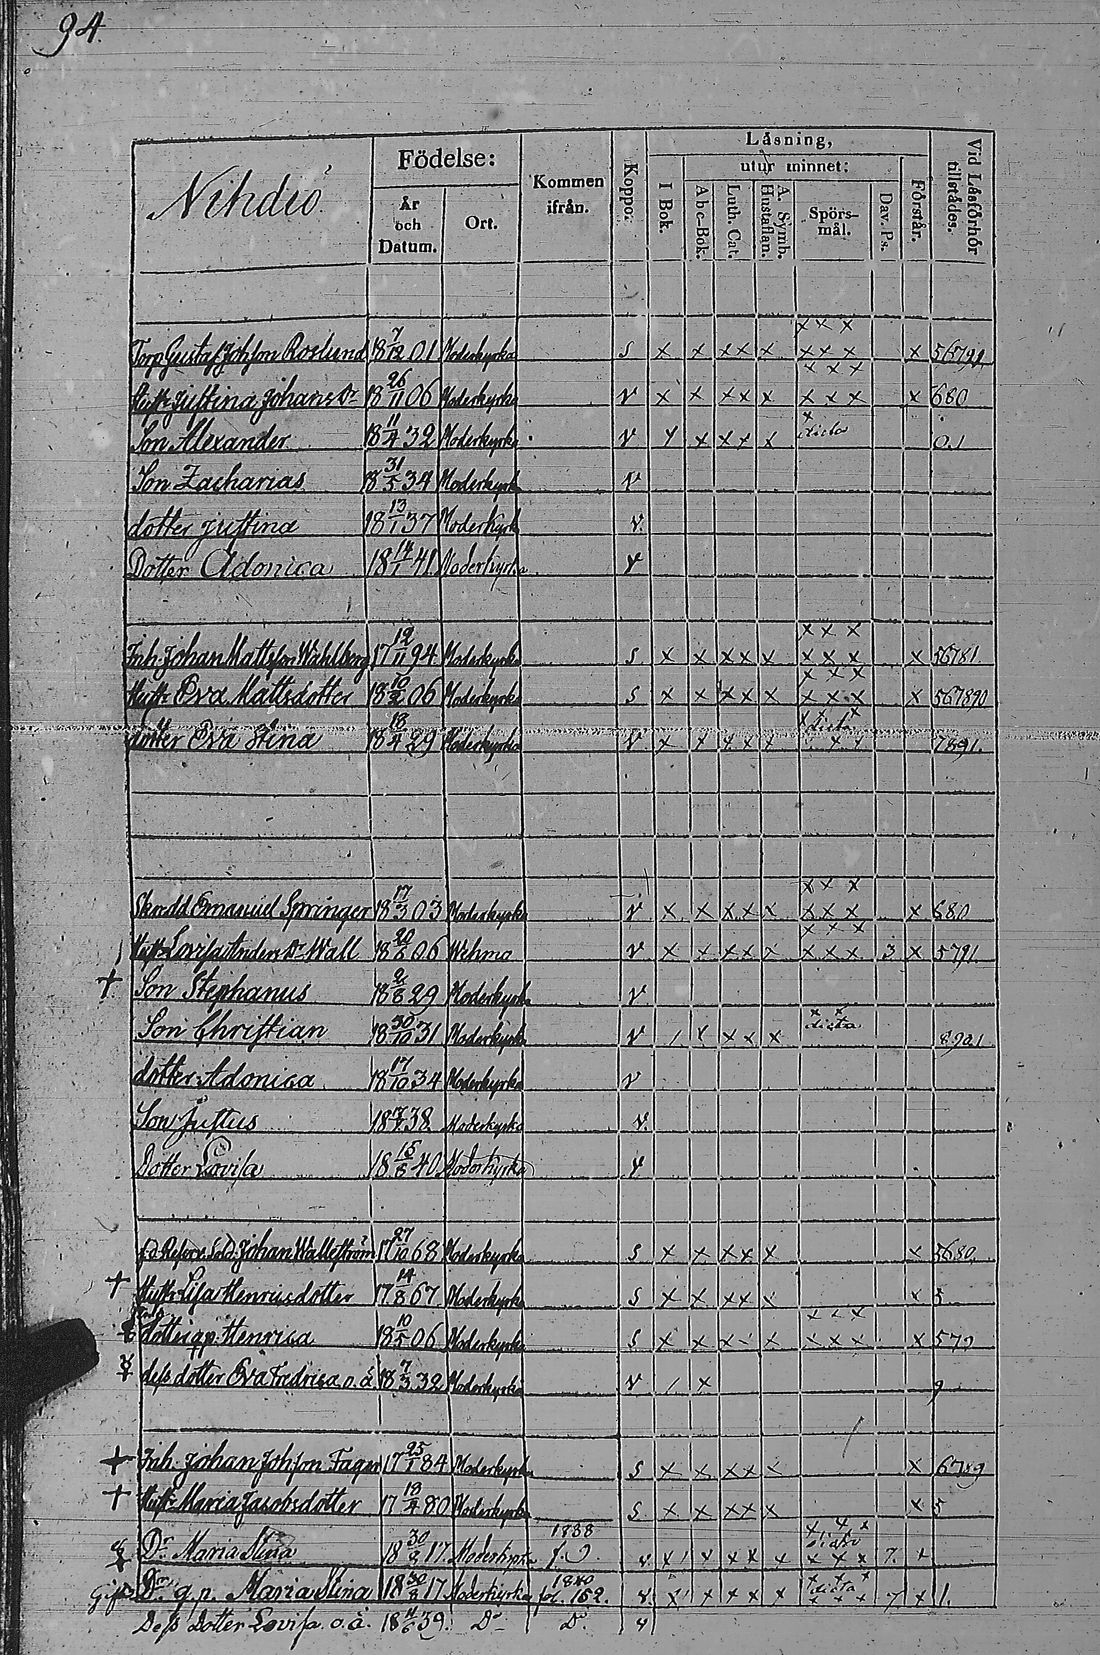 94.
Nihdiö
Födelse:
År och Datum.
Ort.
Kommen ifrån.
Koppo:
Läsning,
utur minnet:
I Bok.
Abc-Bok.
Luth. Cat.
A. Symb. Hustaflan.
Spörs-mål.
Dav. Ps.
Förstår.
Vid Läsförhör tillstädes.
Torp Gustaf Johsson Roslund 18 7/12 01 Moderkyrka s x x xx x xxx xxx x 56791
Hust. Justina Johans Dr 18 26/11 06 Moderkyrka v x x xx x xxx xxx x 680
Son Alexander 18 11/4 32 Moderkyrka v x xx x x dicta 01
Son Zacharias 18 31/5 34 Moderkyrka v
dotter Justina 18 13/1 37 Moderkyrk v.
Dotter Adonica 18 14/1 41 Moderkyrka v
Inh. Johan Mattsson Wahlberg 17 12/11 94 Moderkyrka s x x xx x xxx xxx x 56781
Hust. Eva Mattsdotter 18 10/2 06 Moderkyrka s x x xx x xxx xxx x 567890
dotter Eva Stina 18 13/4 29 Moderkyrka v x x x x x dicta 7891.
Skredd Emanuel Springer 18 17/3 03 Moderkyrka v x x xx x xxx xxx x 680
Hust. Lovisa Anders Dr Wall 18 20/6 06 Wehmo v x x xx x xxx xxx 3 x 5791
† Son Stephanus 18 2/8 29 Moderkyrka v
Son Christian 18 30/10 31 Moderkyrka v x x x x x dicta 8901
dotter Adonica 18 17/10 34 Moderkyrka v
Son Justus 18 38. Moderkyrka v.
Dotter Lovisa 18 15/8 40 Moderkyrka v
fd Reserv. Sold. Johan Wallström 17 27/10 68 Moderkyrka s x x xx x x 5680
† Hust. Lisa Henricsdotter 17 14/8 67 Moderkyrka s x x xx x x 5
dotter qp. Henrica 18 10/5 06 Moderkyrka s x x x x x xxx xxx x 579
dess dotter Eva Fredrica o. ä. 18 7/3 32 Moderkyrka v / x 9
† Inh. Johan Johsson Fager 17 25/1 84 Moderkyrka s x x xx x x 6789
† Hust. Maria Jacobsdotter 17 80 Moderkyrka s x x xx x x 5
Dr Maria Stina 18 30/8 17. Moderkyrka 1838 v x x x x x dicta xxx 7 x
Gift Dr q. p. Maria Stina 18 30/8 17 Moderkyrka 1840 fol. 152. v x x x x x dicta 7 x 1.
Dess Dotter Lovisa. o. ä. 18 39. Do Do v